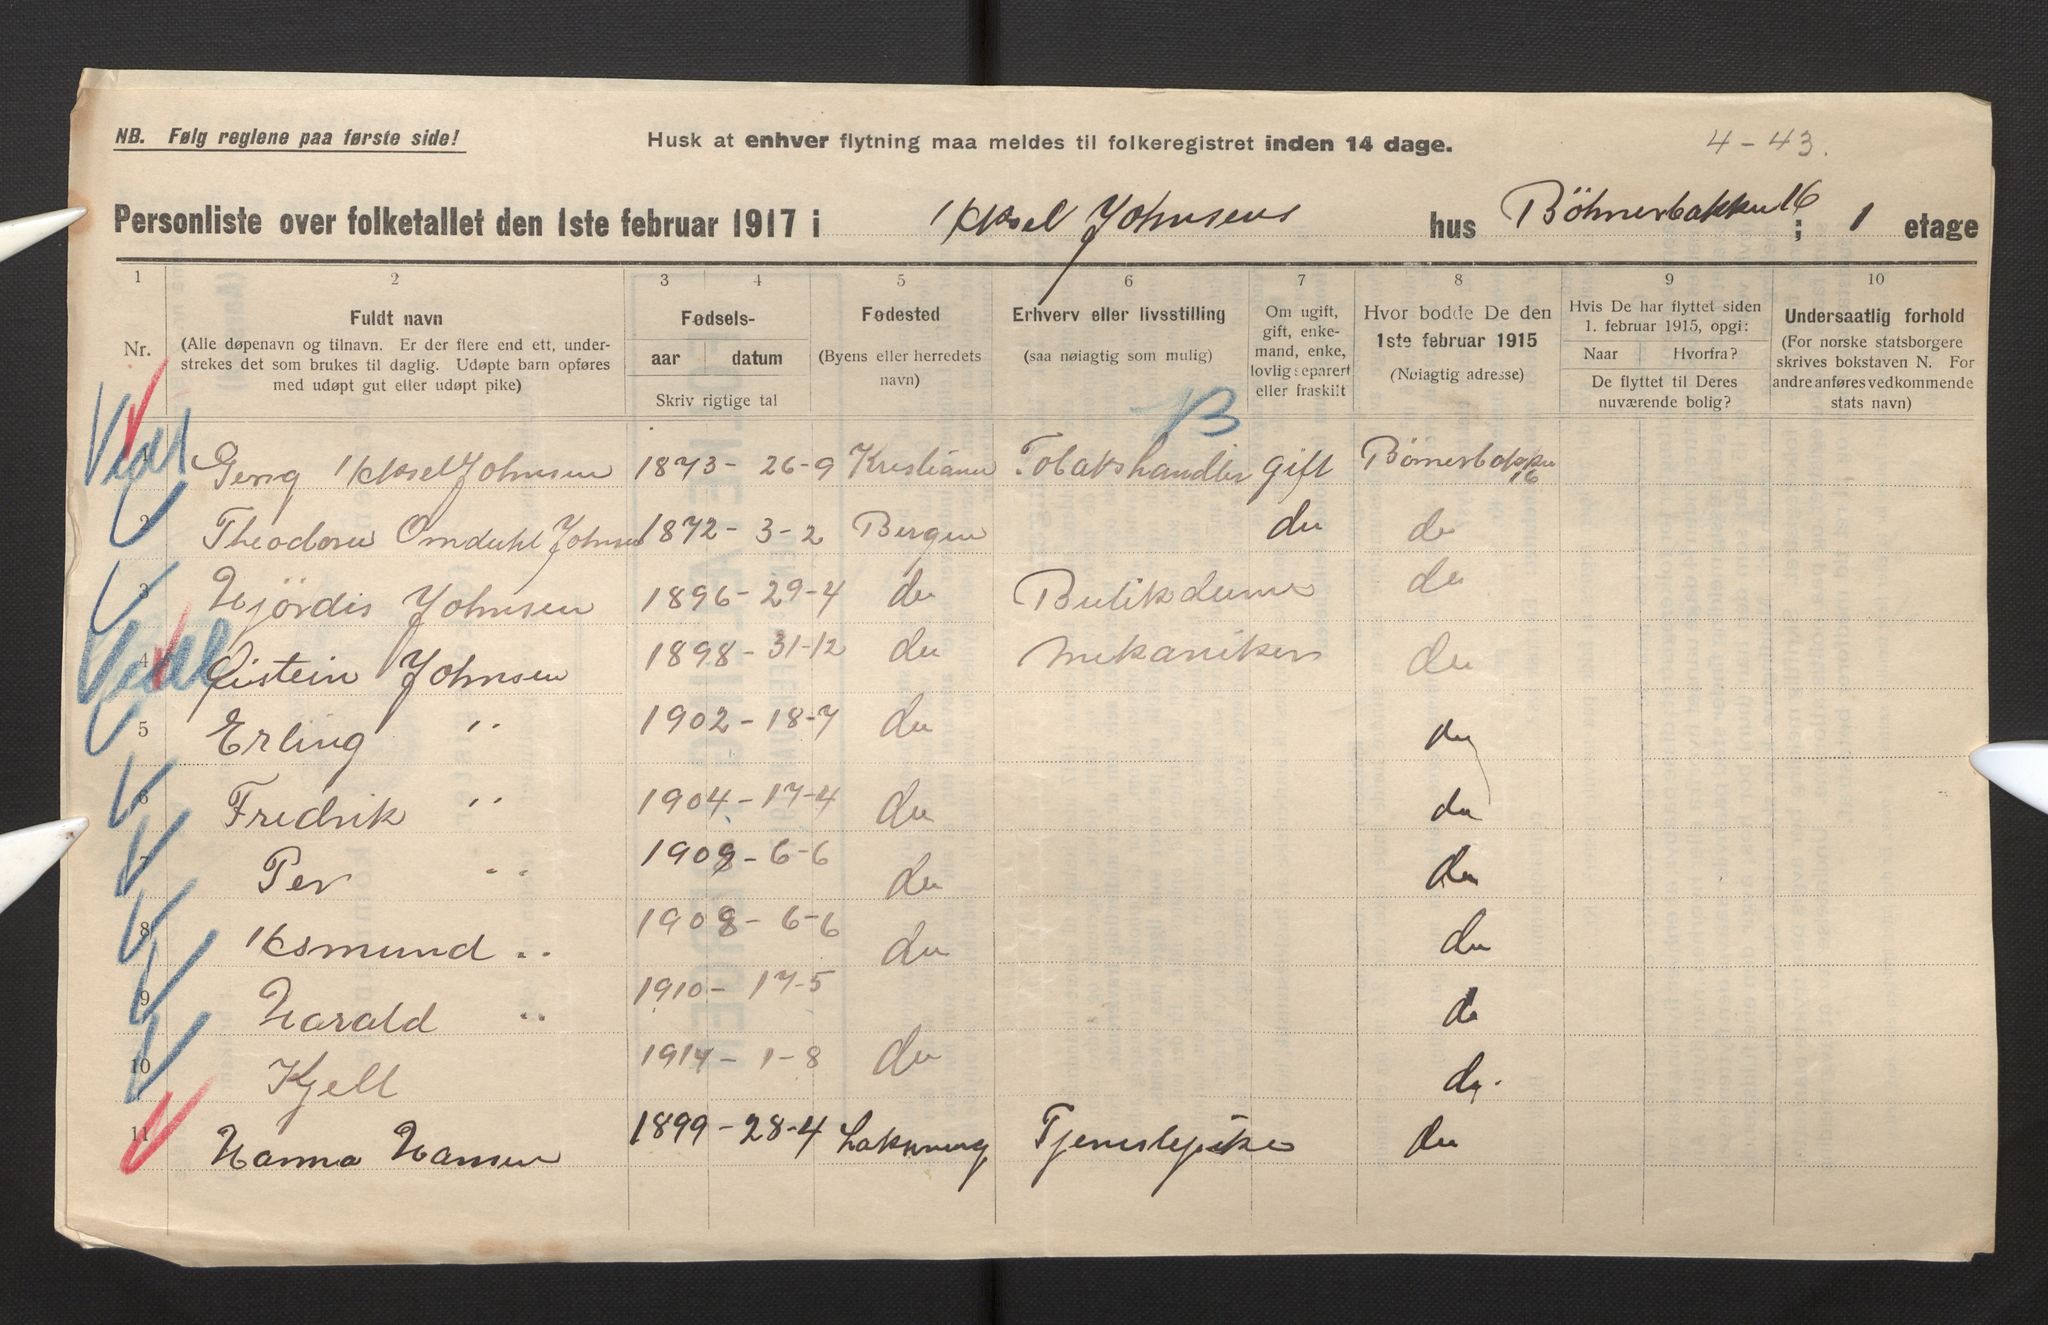 NB. Følg reglene paa første side!
Husk at enhver flytning maa meldes til folkeregistret inden 14 dage.
4-43.
Personliste over folketallet den 1ste februar 1917 i Aksel Johnsens hus Böhnerbakken 16; 1 etage
1 2 3 4 5 6 7 8 9 10
Nr.
Fuldt navn
(Alle døpenavn og tilnavn. Er der flere end ett, under-
strekes det som brukes til daglig. Udøpte barn opføres
med udøpt gut eller udøpt pike)
Fødsels-
aar datum
Skriv rigtige tal
Fødested
(Byens eller herredets
navn)
Erhverv eller livsstilling
(saa nøiagtig som mulig)
Om ugift,
gift, enke-
mand, enke,
lovlig separert
eller fraskilt
Hvor bodde De den
1ste februar 1915
(Nøiagtig adresse)
Hvis De har flyttet siden
1. februar 1915, opgi:
Naar Hvorfra?
De flyttet til Deres
nuværende bolig?
Undersaatlig forhold
(For norske statsborgere
skrives bokstaven N. For
andre anføres vedkommende
stats navn)
B
1 Georg Aksel Johnsen 1873- 26-9 Kristiania Tobakshandler gift Bömerbakken 16
2 Theodora Omdahl Johnsen 1872- 3-2 Bergen do do
3 Hjördis Johnsen 1896- 29-4 do Butikdame do
4 Øistein Johnsen 1898- 31-12 do Mekaniker do
5 Erling " 1902- 18-7 do do
6 Fredrik " 1904- 17-4 do do
7 Per " 1908- 6-6 do do
8 Asmund " 1908- 6-6 do do
9 Harald " 1910- 17-5 do
10 Kjell 1914- 1-8 do do.
11 Hanna Hansen 1899- 28-4 Tjenestepike do